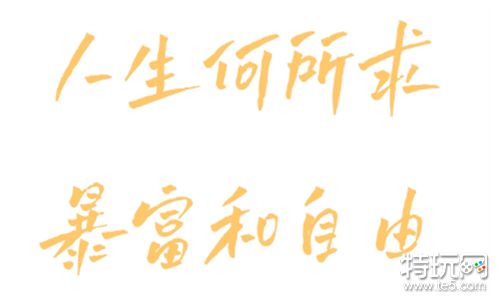 人生何所求
暴富和自由
特玩网
www.te5.com